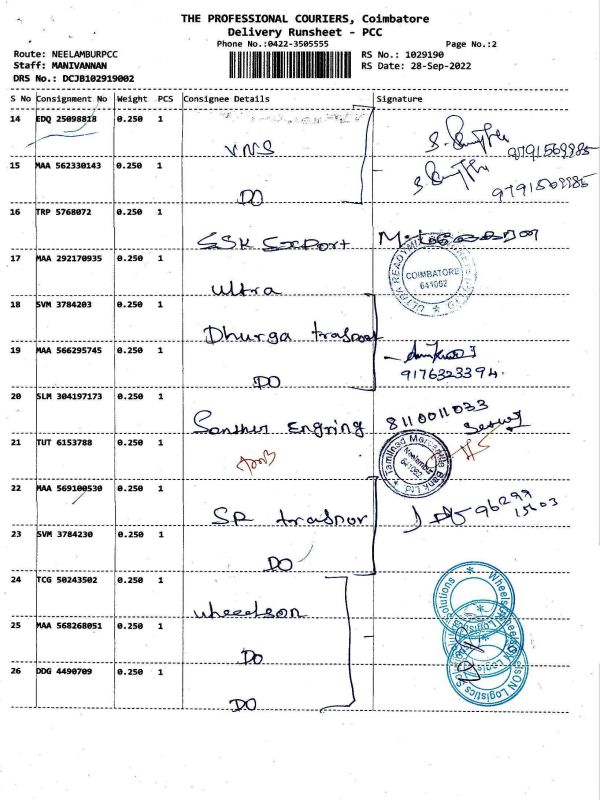 THE PROFESSIONAL COURIERS, Coimbatore
Delivery Runsheet - PCC
Phone No.:0422-3505555
Page No.:2
Route: NEELAMBURPCC
RS No.: 1029190
Staff: MANIVANNAN
RS Date: 28-Sep-2022
DRS No.: DCJB102919002
S No Consignment No Weight PCS Consignee Details Signature
14 EDQ 25098818 0.250 1
VNS
9791569985
15 MAA 562330143 0.250 1
DO
9791569985
16 TRP 5768072 0.250 1
SSK Export
17 MAA 292170935 0.250 1
Ultra
ULTRA READYMIX
COIMBATORE
641002
18 SVM 3784203 0.250 1
Dhurga trasport
19 MAA 566295745 0.250 1
DO
9176323394.
20 SLM 304197173 0.250 1
Santhur Engring
8110011033
21 TUT 6153788 0.250 1
TMB
Tamilnad Mercantile Bank Ltd
Neelambur
22 MAA 569100530 0.250 1
SR traspor
96299
15603
23 SVM 3784230 0.250 1
DO
24 TCG 50243502 0.250 1
wheelson
25 MAA 568268051 0.250 1
DO
26 DDG 4490709 0.250 1
DO
WheelsON Logistics Solutions